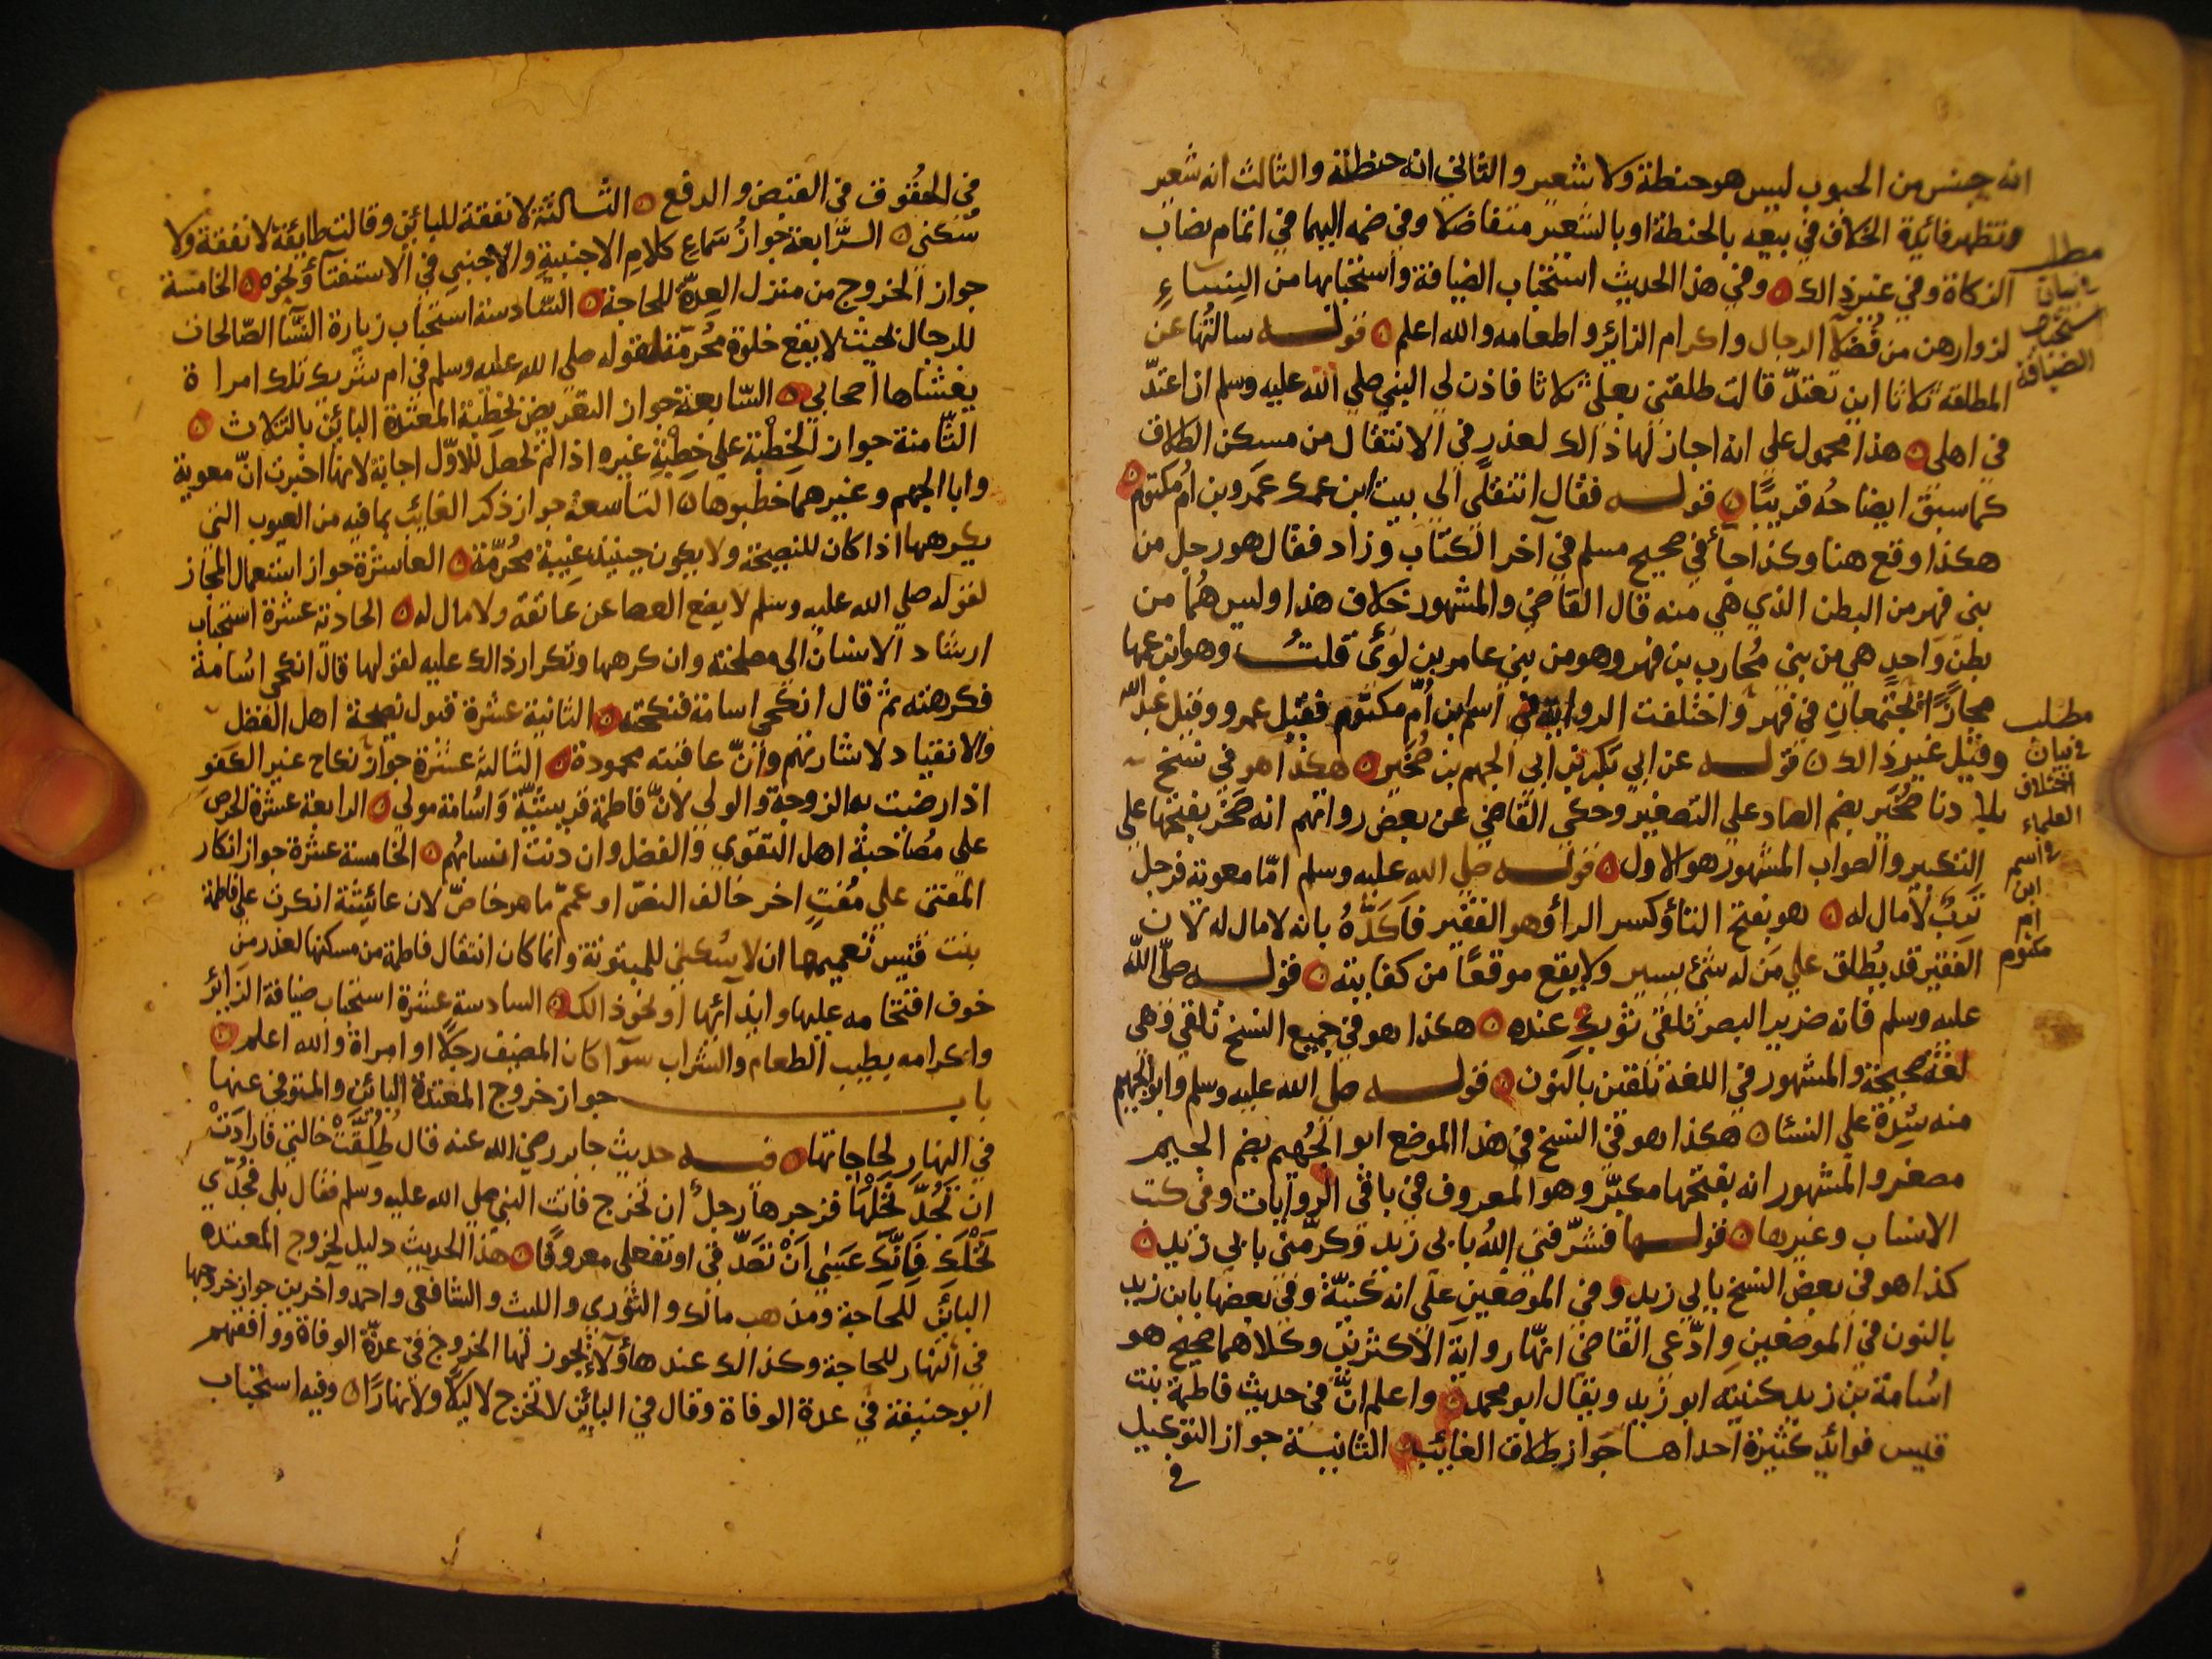 انه جنس من الحبوب ليس هو حنطة ولا شعير والثاني انه حنطة والثالث انه شعير
وتظهر فائدة الخلاف في بيعه بالحنطة او بالشعير متفاضلا وفي ضمه اليهما في اتمام نصاب
الزكاة وفي غير ذالك وفي هذا الحديث استحباب الضيافة واستحبابها من النساء
لزوارهن من فضلا الرجال واكرام الزائر واطعامه والله اعلم قوله سالتها عن
المطلقة ثلاثا اين تعتد قالت طلقني بعلي ثلاثا فاذن لي النبي صلي الله عليه وسلم ان اعتد
في اهلي هذا محمول علي انه اجاز لها ذالك لعذر في الانتقال من مسكن الطلاق
كما سبق ايضاحه قريبا قوله فقال انتقلي الي بيت ابن عمك عمرو بن ام مكتوم
هكذا وقع هنا وكذا جآ في صحيح مسلم في آخر الكتاب وزاد فقال هو رجل من
بني فهر من البطن الذي هي منه قال القاضي والمشهور خلاف هذا وليس هما من
بطن واحد هي من بني محارب بن فهر وهو من بني عامر بن لوئ قلت وهو ابن عمها
مجازا يجتمعان في فهر واختلفت الرواية في اسم ابن ام مكتوم فقيل عمرو وقيل عبد الله
وقيل غير ذالك قوله عن ابي بكر بن ابي الجهم بن صخير هكذا هو في نسخ
بلادنا صخير بضم الصاد علي التصغير وحكي القاضي عن بعض رواتهم انه صخر بفتحها علي
التكبير والصواب المشهور هو الاول قوله صلي الله عليه وسلم امّا معوية فرجل
ترب لا مال له هو بفتح التا وكسر الرا وهو الفقير فاكده بانه لا مال له لان
الفقير قد يطلق علي من له شئ يسير ولا يقع موقعا من كفايته قوله صلّي اللّه
عليه وسلم فانه ضرير البصر تلقي ثوبك عنده هكذا هو في جميع النسخ تلقي وهي
لغة صحيحة والمشهور في اللغة تلقين بالنون قوله صلي الله عليه وسلم وابو الجهيم
منه شدة علي النسا هكذا هو في النسخ في هذا الموضع ابو الجهيم بضم الجيم
مصغر والمشهور انه بفتحها مكبّر وهو المعروف في باقي الروايات وفي كت
الانساب وغيرها قولها فشرّفني الله بابي زيد وكرّمني بابي زيد
كذا هو في بعض النسخ بابي زيد في الموضعين علي انه كنيّة وفي بعضها بابن زيد
بالنون في الموضعين وادّعي القاضي انّها رواية الاكثرين وكلاهما صحيح هو
اسامة بن زيد كنيته ابو زيد ويقال ابو محمد واعلم انّ في حديث فاطمة بنت
قيس فوائد كثيرة احداها جواز طلاق الغائب الثانية جواز التوكيل
في
مطلب
في بيان
استحباب
الضيافة
مطلب
في بيان
اختلاف
العلماء
في اسم
ابن
ام
مكتوم
في الحقوق في القبض والدفع الثالثة لا نفقة للبائن وقالت طايفة لا نفقة ولا
سكني الرابعة جواز سماع كلام الاجنبية والاجنبي في الاستفتآ ونحوه الخامسة
جواز الخروج من منزل العدّة للحاجة السّادسة استحباب زيارة النّسا الصّالحات
للرجال بحيث لا يقع خلوة محرمة لقوله صلي الله عليه وسلم في ام شريك تلك امراة
يغشاها اصحابي السّابعة جواز التعريض لخطبة المعتدة البائن بالثلاث
الثّامنة جواز الخطبة علي خطبة غيره اذا لم تحصل للاوّل اجابة لانها اخبرت انّ معوية
وابا الجهم وغيرهما خطبوها التاسعة جواز ذكر الغائب بما فيه من العيوب التي
يكرهها اذا كان للنصيحة ولا يكون حينيذ غيبة محرّمة العاشرة جواز استعمال المجاز
لقوله صلي الله عليه وسلم لا يضع العصا عن عاتقه ولا مال له الحادية عشرة استحباب
ارشاد الانسان الي مصلحته وان كرهها وتكرار ذالك عليه لقولها قال انكحي اسامة
فكرهته ثم قال انكحي اسامة فنكحته الثانية عشرة قبول نصيحة اهل الفضل
والانقياد لاشارتهم وانّ عاقبته محمودة الثالثة عشرة جواز نكاح غير الكفو
اذا رضيت به الزوجة والولي لانّ فاطمة قريشيّة واسامة مولي الرابعة عشرة الحرص
علي مصاحبة اهل التقوي والفضل وان دنت انسابهم الخامسة عشرة جواز انكار
المفتي علي مفت اخر خالف النصّ او عمّم ما هو خاصّ لان عائشة انكرت علي فاطمة
بنت قيس تعميمها ان لا سكني للمبتوتة وانما كان انتقال فاطمة من مسكنها لعذر من
خوف اقتحامه عليها وابذآئها او نحو ذالك السادسة عشرة استحباب ضيافة الزائر
واكرامه بطيب الطعام والشراب سوآ كان المضيف رجلا او امراة والله اعلم
باب جواز خروج المعتدة البائن والمتوفي عنها
في النهار لحاجاتها فيه حديث جابر رضي الله عنه قال طلقت خالتي فارادت
ان تجدّ نخلها فزجرها رجل ان تخرج فاتت النبي صلي الله عليه وسلم فقال بلي فجدّي
نخلك فانك عسي ان تصدّقي او تفعلي معروفا هذا الحديث دليل لخروج المعتدة
البائن للحاجة ومذهب مالك والثوري والليث والشافعي واحمد وآخرين جواز خروجها
في النهار للحاجة وكذالك عند هاؤلآء يجوز لها الخروج في عدّة الوفاة ووافقهم
ابو حنيفة في عدة الوفاة وقال في البائن لا تخرج لا ليلا ولا نهارا وفيه استحباب